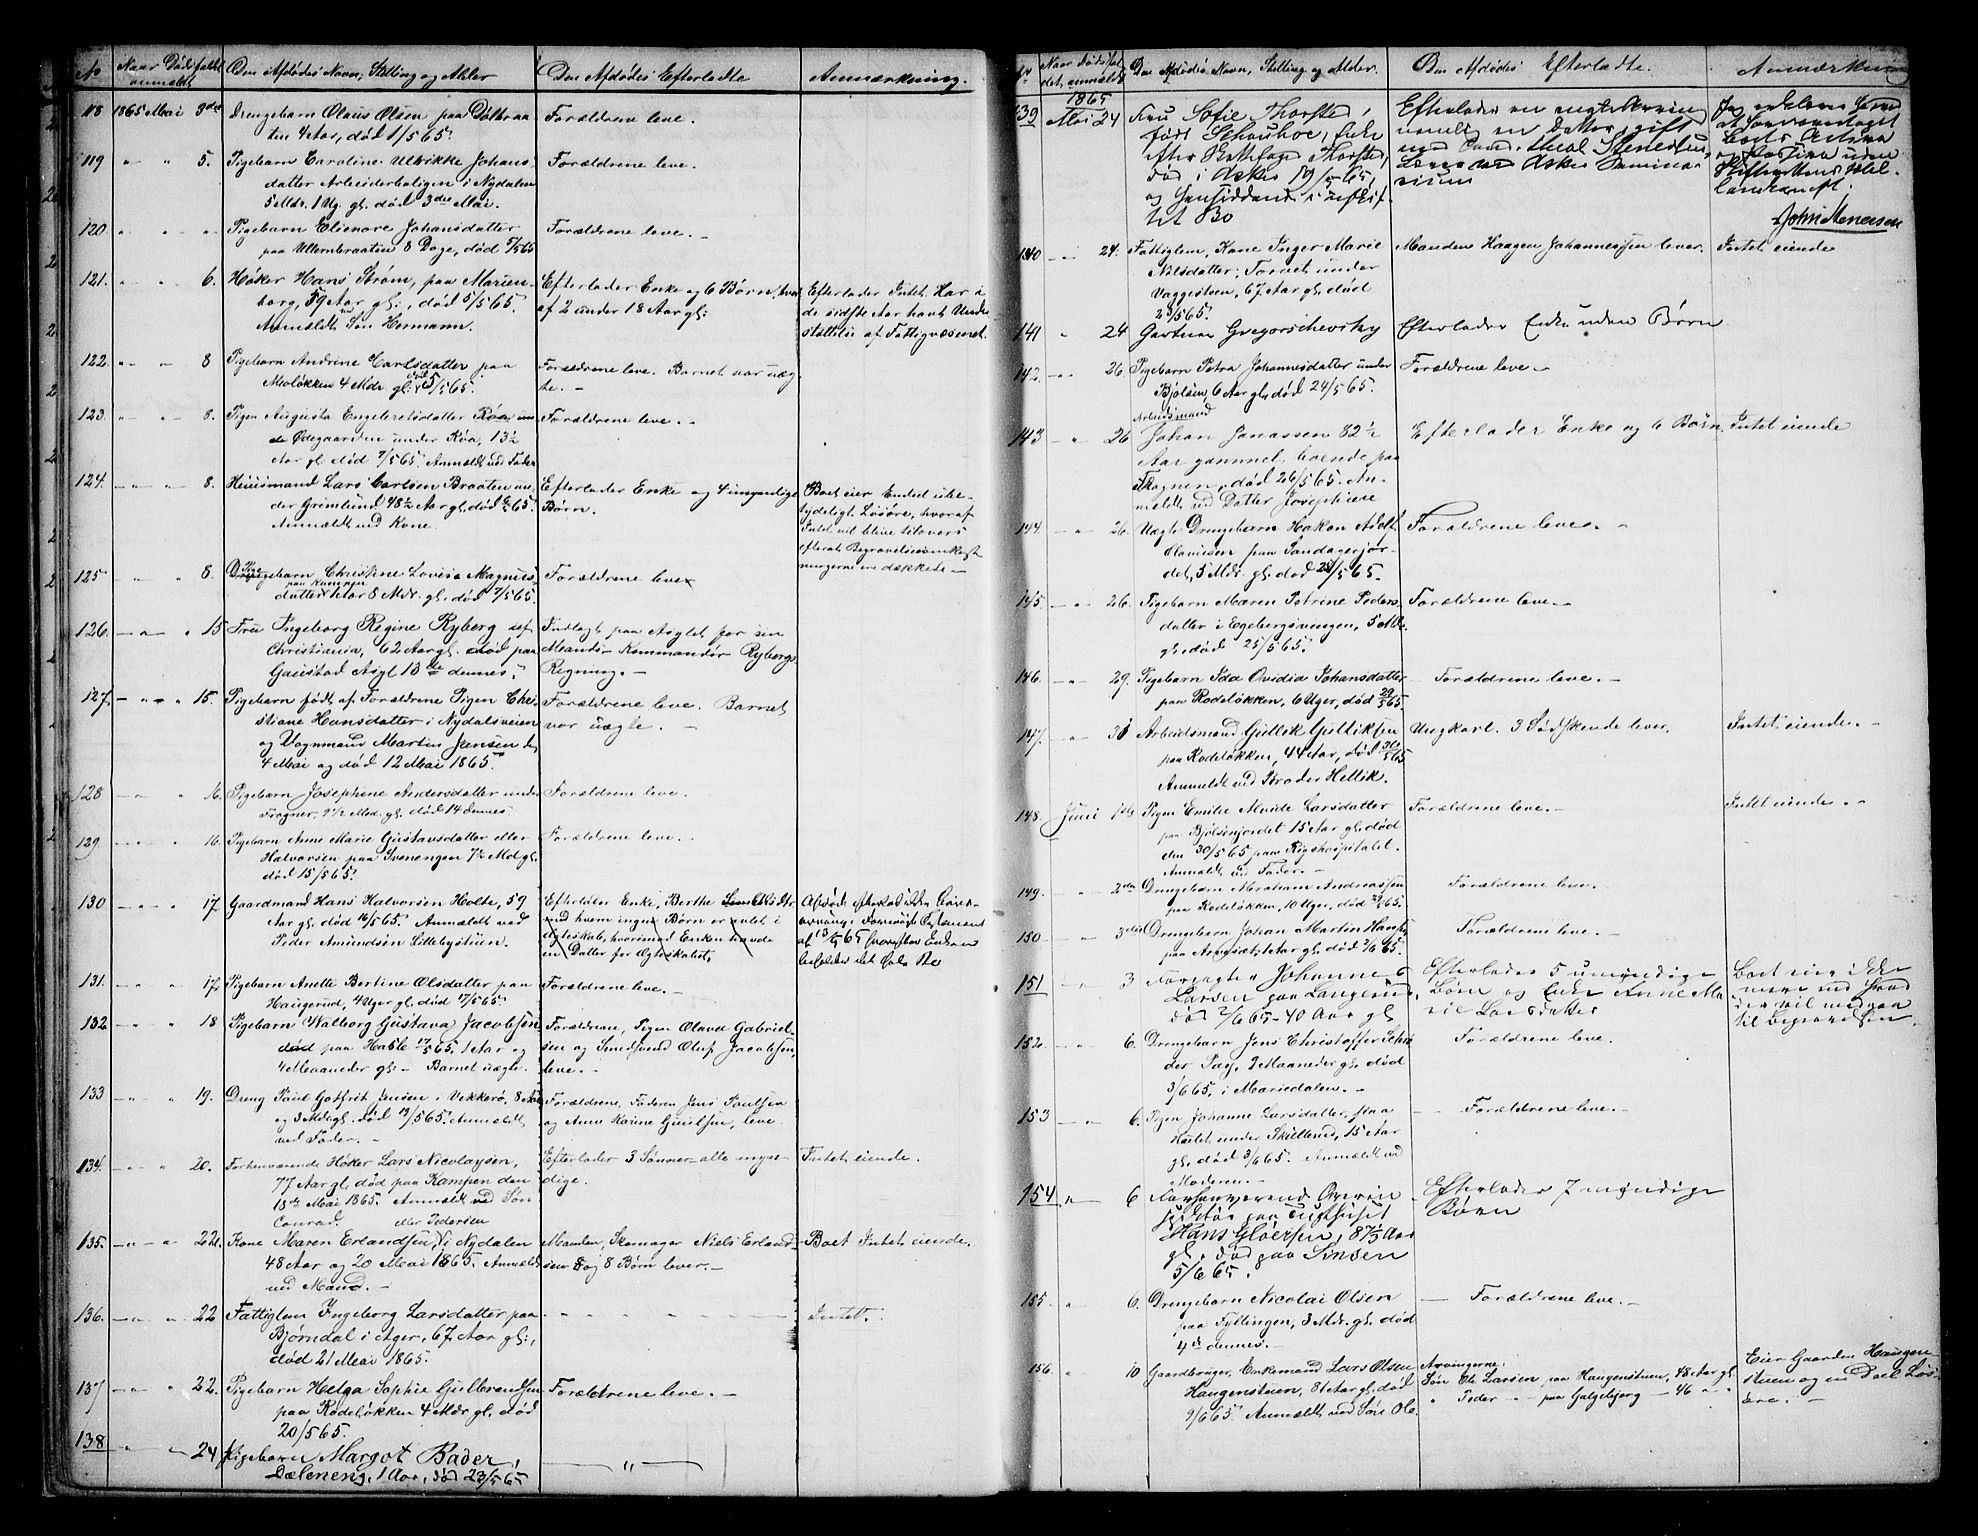 No Naar Dødsfaldet anmeldt Den Afdødes Navn, Stilling og Alder Den Afdødes Efterladte Anmærkning.
118 1865 Mai 3die Drengebarn Olaus Olsen paa Dølbraa- Forældrene leve.
ten 4 Aar, død 1/5 65.
119 " " 5. Pigebarn Caroline Ullrikke Johans- Forældrene leve.
datter Arbeiderboligen i Nydalen
5 Mdr. 1 Ug. gl. død 3die Mai.
120 " " " Pigebarn Elienore Johansdatter Forældrene leve. -
paa Ullernbraaten 8 Dage, død 5/5 65
121. " " 6. Høker Hans Strøm, paa Marien- Efterlader Enke og 6 Børn, hvo- Efterlader Intet. Har i
borg, 59 Aar gl:, død 5/5 65. af 2 under 18 Aar gl: de sidste Aar havt Under-
Anmeldt ved Søn Hermann. støttelse af Fattigvæsenet.
122. " " 8 Pigebarn Andrine Carlsdatter paa Forældrene leve. Barnet var uæg-
Moløkken 4 Mdr gl: død 5/5 65. te. -
123. " " 8. Pigen Augusta Engebretsdatter Røa un- Forældrene leve. -
de Ødegaarden under Røa, 13½
Aar gl. død 7/5 65. Anmeldt ved Fader
124. " " 8. Huusmand Lars Carlsen Braaten un- Efterlader Enke og 4 umyndige Boet eier Endel ube-
der Grimlund 48½ Aar gl, død 6/5 65. Børn. tydeligt Løsøre, hvoraf
Anmeldt ved Kone. Intet vil blive tilovers
efterat Begravelsesomkost-
125 " " 8. Pigebarn Christine Lovise Magnus- Forældrene leve ningerne ere dækkede -
datter paa Kampen 8 Mdr. gl., død 7/5 65.
126. " " 15 Fru Ingeborg Regine Ryberg af Indlagt paa Asylet for sin
Christiania, 62 Aar gl. død paa Mands Kommandør Rybergs
Gaustad Asyl 13de dennes. Regning. -
127 " " 15. Pigebarn født af Forældrene Pigen Chri- Forældrene leve. Barnet
stiane Hansdatter i Nydalsveien var uægte. -
og Vognmand Martin Jensen d.
4 Mai og død 12 Mai 1865.
128 " " 16. Pigebarn Josephine Andersdatter under Forældrene leve.
Frogner, 9½ Md. gl. død 14 dennes.
129 " " 16. Pigebarn Anne Marie Gustavsdatter eller Forældrene leve. -
Halvorsen paa Svenengen 7½ Md gl.
død 15/5 65.
130 " " 17. Gaardmand Hans Halvorsen Holte, 59 Efterlader Enke, Berthe
Aar gl. død 16/5 65. Anmeldt ved med hvem ingen Børn er avlet i
Peder Amundsen Lillebystuen. Ægteskab, hvorimod Enken havde af 13/5 65 hvorefter Enken
en Datter før Ægteskabet. beholder det hele Bo
131. " " 17. Pigebarn Anette Bertine Olsdatter paa Forældrene leve. -
Haugerud, 4 Uger gl. død 17/5 65.
132 " " 18 Pigebarn Walborg Gustava Jacobsen Forældrene, Pigen Olava Gabriel-
død paa Hasle 17/5 65. 1 Aar og sen og Smedsvend Oluf Jacobsen,
4 Maaneder gl: - Barnet uægte. leve. -
133 " " 19. Dreng Paul Gotfrit Jensen i Vækkerø, 8 Aar Forældrene, Faderen Jens Paulsen
og 3 Mdr gl. død 19/5 65. Anmeldt og Anne Karine Guulsen, leve.
ved Fader. -
134. " " 20. Forhenværende Høker Lars Nicolaysen, Efterlader 3 Sønner - alle myn- Intet eiende.
77 Aar gl, død paa Kampen den dige.
18de Mai 1865. Anmeldt ved Søn
Conrad.
eller Pedersen
135. " " 22. Kone Maren Erlandsen, i Nydalen Manden, Skomager Niels Erland- Boet Intet eiende.
48 Aar og 20 Mai 1865. Anmeldt sen og 8 Børn lever. -
ved Mand. -
136. " " 22 Fattiglem Ingeborg Larsdatter paa - - - - Intet.
Bjørndal i Ager, 67 Aar gl:,
død 21 Mai 1865.
137 " " 22. Pigebarn Helga Sophie Gulbrandsen Forældrene leve. -
paa Rødeløkken 4 Mdr gl, død
20/5 65.
138 " " 24 Pigebarn Margot Bader, — " —
Dæleneng, 1 Aar, død 23/5 65
No Naar Dødsfaldet anmeldt Den Afdødes Navn, Stilling og Alder. Den Afdødes Efterladte. Anmærkning
139 1865 Mai 24 Fru Sofie Thorsted,
født Schouboe, Enke
efter Thorsted,
død i Asker 19/5 65,
og hensiddende i uskif-
tet Bo
John Stenersen
140 " 24. Fattiglem, Kone Inger Marie Manden Haagen Johannessen lever. Intet eiende
Nilsdatter, Torvet under
Vaggesteen, 67 Aar gl. død
23/5 65.
141 " 24 Gartner Gregorschevsky Efterlader Enke uden Børn
142. " 26. Pigebarn Petra Johannesdatter under Forældrene leve -
Bjølsen, 6 Aar gl, død 24/5 65.
Arbeidsmand
143 " 26 Johan Jonassen 82½ Efterlader Enke og 6 Børn. Intet eiende
Aar gammel, boende paa
død 26/5 65. An-
meldt ved Datter Josephine
144. " 26. Uægte Drengebarn Hakon Adolf Forældrene leve. -
Olavesen paa Sandagerjor-
det, 5 Mdr. gl. død 25/5 65.
145. " 26. Pigebarn Maren Petrine Peders- Forældrene leve. -
datter i Egebergsvingen, 5 Mdr.
gl. død 25/5 65.
146. " 29. Pigebarn Ida Ovidia Johansdatter - Forældrene leve. -
paa Rodeløkken, 6 Uger, død 29/5 65.
147. " 31 Arbeidsmand Gullik Gulliksen Ungkarl. 3 Sødskende lever. Intet eiende. -
paa Rodeløkken, 44 Aar, død 30/5 65
Anmeldt ved Broder Hellik.
148. Juni 1ste Pigen Emilie Alvide Larsdatter Forældrene leve. - Intet eiende. -
paa Bjølsenjordet 15 Aar gl. død
den 30/5 65 paa Rigshospitalet.
Anmeldt ved Fader. -
149. " 2den Drengebarn Abraham Andreassen Forældrene leve.
paa Rodeløkken, 10 Uger, død 65.
150 " 3die Drengebarn Johan Martin Hansen Forældrene leve. -
1 Aar gl. død 2/6 65.
151 " 3 Johannes Efterlader 5 umyndige Boet eier ikke
Larsen paa Langerud, Børn og Enke Anne Ma- mere end hvad
død 2/6 65 - 40 Aar gl rie Larsdatter der vil medgaa
til Begravelsen.
152. " 6. Drengebarn Jens Christoffer Forældrene leve.
2 Maaneder gl. død
3/6 65, i Mariedalen. -
153 " 6. Pigen Johanne Larsdatter, paa - Forældrene leve. -
under Skillend, 15 Aar
gl. død 3/6 65. Anmeldt ved
Moderen. -
154 " 6 Forhenværende Efterlader 7 myndige
paa Tugthuset Børn
Hans Gløersen, 87½ Aar
gl. død paa Sinsen
5/6 65.
155. " 6. Drengebarn Nicolai Olsen - Forældrene leve. -
paa Fyllingen, 3 Mdr. gl, død
4de dennes. -
156. " 10 Gaardbruger, Enkemand Lars Olsen Arvingerne: Eier Gaarden Haugen-
Haugenstuen, 81 Aar gl, død Søn Ole Larsen paa Haugenstuen, 48 Aar gl. stuen og en Deel Løs-
9/6 65. Anmeldt ved Søn Ole. " Peder - " - paa Galgebjerg - 46 " " øre. -